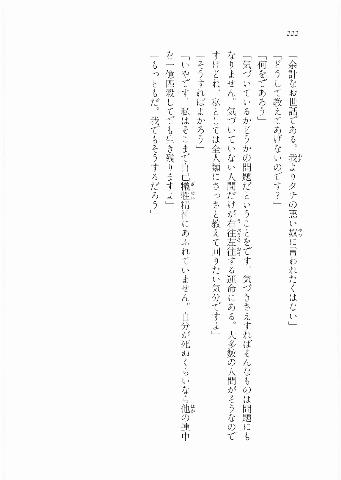 222
「余計なお世話である。我よりタチの悪い奴に言われたくはない」
「どうして教えてあげないのです？」
「何をであろう」
「気づいているかどうかの問題だということをです。気づきさえすればそんなものは問題にも
なりません。気づいていない人間だけが右往左往する運命にある。大多数の人間がそうなので
すけどね。私としては全人類にさっさと教えて回りたい気分ですよ」
「そうすればよかろう」
「いやです。私はそこまで自己犠牲精神にあふれていません。自分が死ぬくらいなら他の連中
を一億匹殺してでも生き残りますよ」
「もっともだ。我でもそうするだろう」